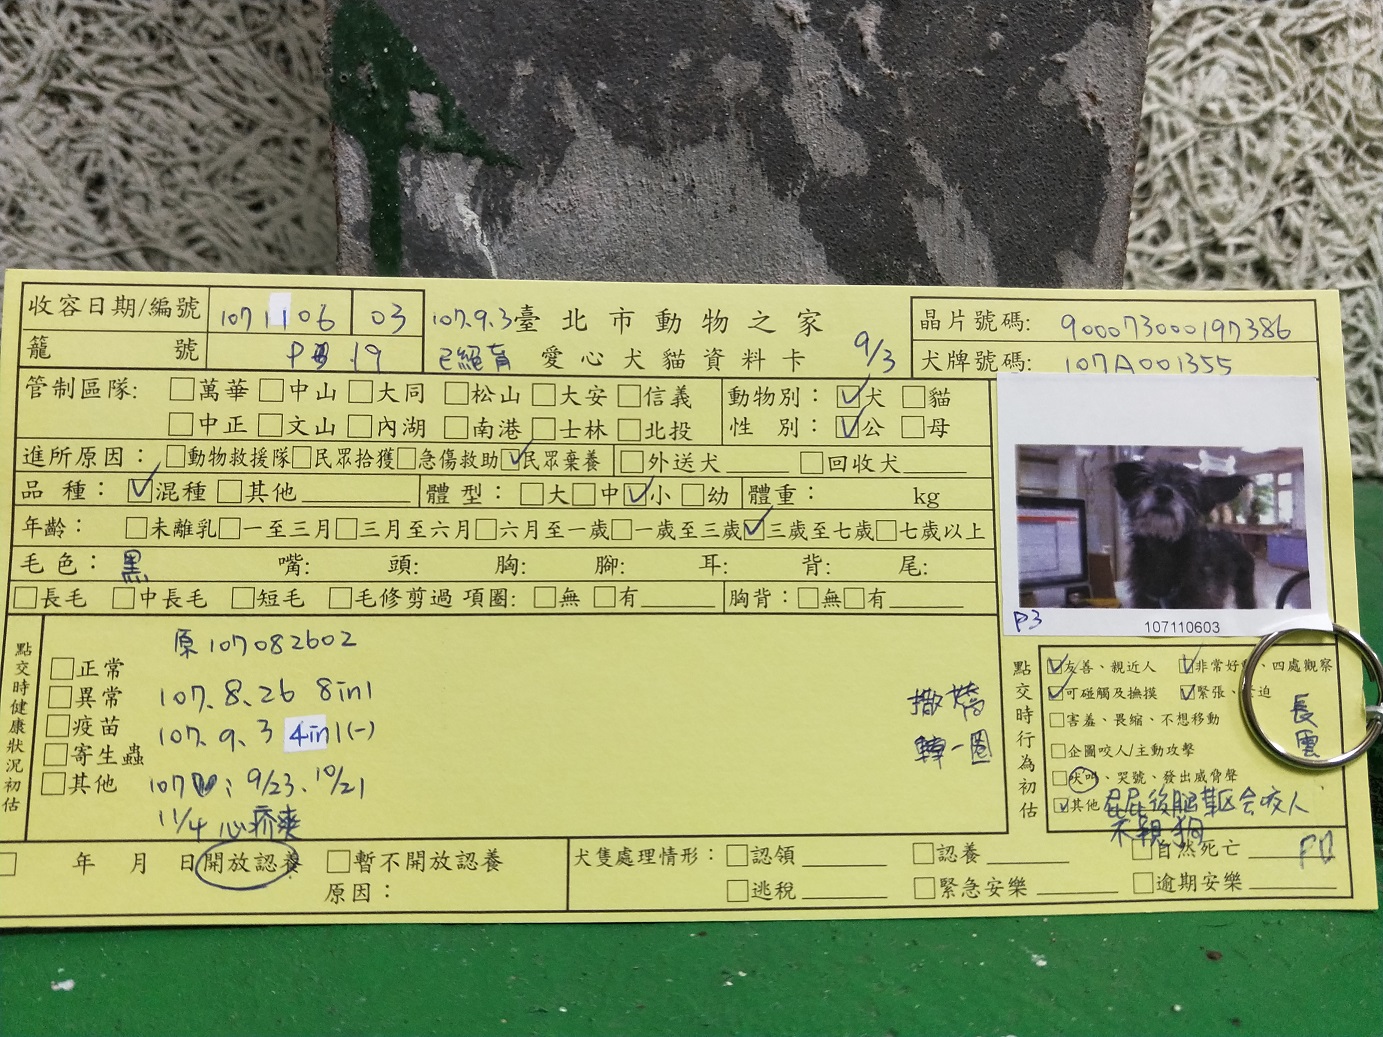 收容日期/編號 1071106 03 107.9.3 臺北市動物之家 晶片號碼: 900073000197386
籠 號 19 已絕育 愛心犬貓資料卡 9/3 犬牌號碼: 107A001355
管制區隊: □萬華□中山□大同 □松山□大安□信義 動物別: ☑犬 □貓
□中正□文山□內湖 □南港□士林□北投 性 別: ☑公 □母
進所原因: □動物救援隊□民眾拾獲□急傷救助☑民眾棄養 □外送犬______ □回收犬______
品 種: ☑混種 □其他________ 體 型: □大□中☑小 □幼 體重: kg
年齡: □未離乳□一至三月□三月至六月□六月至一歲□一歲至三歲☑三歲至七歲□七歲以上
毛色: 黑 嘴: 頭: 胸: 腳: 耳: 背: 尾:
□長毛 □中長毛 □短毛 □毛修剪過 項圈: □無 □有______ 胸背: □無□有______
P3 107110603
點交時健康狀況初估
原107082602
□正常
□異常 107.8.26 8in1
□疫苗 107.9.3 4in1(-)
□寄生蟲
□其他 107 ; 9/23. 10/21
11/4 心疥爽
撒嬌
轉一圈
點交時行為初估
☑友善、親近人 ☑非常好 、四處觀察
☑可碰觸及撫摸 ☑緊張、 迫
□害羞、畏縮、不想移動
長雲
□企圖咬人/主動攻擊
□吠叫、哭號、發出威脅聲
☑其他 屁屁後腿 會咬人
不親狗
□ 年 月 日開放認養 □暫不開放認養
原因:
犬隻處理情形: □認領______ □認養______ □自然死亡______
□逃稅______ □緊急安樂______ □逾期安樂______